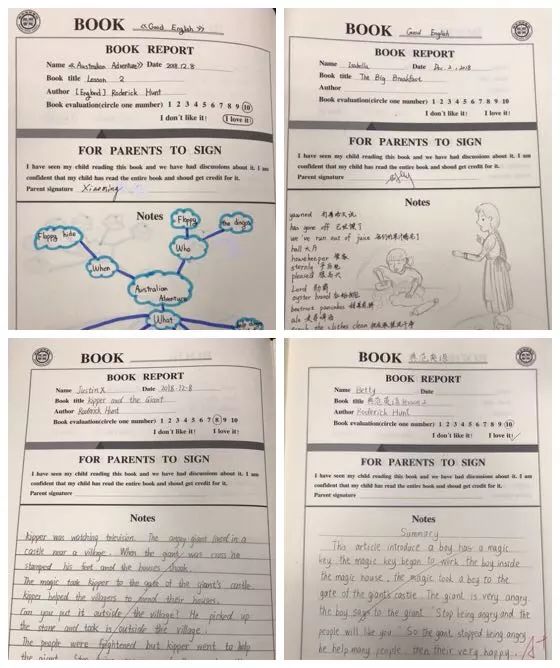 BOOK 《Good English》
BOOK REPORT
Name 《Australian Adventure》 Date 2018.12.8
Book title Lesson 2
Author [England] Roderick Hunt
Book evaluation(circle one number) 1 2 3 4 5 6 7 8 9 10
I don't like it! I love it!
FOR PARENTS TO SIGN
I have seen my child reading this book and we have had discussions about it. I am
confident that my child has read the entire book and shoud get credit for it.
Parent signature Xiaoming
Notes
Floppy hide
Floppy
the dingo
When
Who
Australian
Adventure
What
BOOK Good English
BOOK REPORT
Name Isabella Date Dec. 2, 2018
Book title The Big Breakfast
Author
Book evaluation(circle one number) 1 2 3 4 5 6 7 8 9 10
I don't like it! I love it!
FOR PARENTS TO SIGN
I have seen my child reading this book and we have had discussions about it. I am
confident that my child has read the entire book and shoud get credit for it.
Parent signature
Notes
yawned
has gone off
we've run out of juice
hall 大厅
housekeeper 管家
sternly
pleased
Lord 勋爵
oyster
pancakes
ale
the clothes clean
BOOK
BOOK REPORT
Name Justin X Date 2018-12-8
Book title Kipper and the Giant
Author Roderick Hunt
Book evaluation(circle one number) 1 2 3 4 5 6 7 8 9 10
I don't like it! I love it!
FOR PARENTS TO SIGN
I have seen my child reading this book and we have had discussions about it. I am
confident that my child has read the entire book and shoud get credit for it.
Parent signature
Notes
Kipper was watching television. The angry giant lived in a
castle near a village. When the giant was cross he
stamped his foot and the houses shook.
The magic took Kipper to the gate of the giant's castle.
Kipper helped the villagers to mend their houses.
Can you put it outside the village? He picked up
the stone and took it outside the village.
The people were frightened but Kipper went to help
the giant.
BOOK 典范英语
BOOK REPORT
Name Betty Date
Book title 典范英语 lesson 2
Author Roderick Hunt
Book evaluation(circle one number) 1 2 3 4 5 6 7 8 9 10
I don't like it! I love it!
FOR PARENTS TO SIGN
I have seen my child reading this book and we have had discussions about it. I am
confident that my child has read the entire book and shoud get credit for it.
Parent signature
Notes
Summary
This article introduce a boy has a magic
key. the magic key began to work the boy inside
the magic house. the magic took a boy to the
gate of the giant's castle. The giant is very angry.
the boy says to the giant. "Stop being angry and the
people will like you. "So the giant stopped being angry
be help many people. then their very happy.